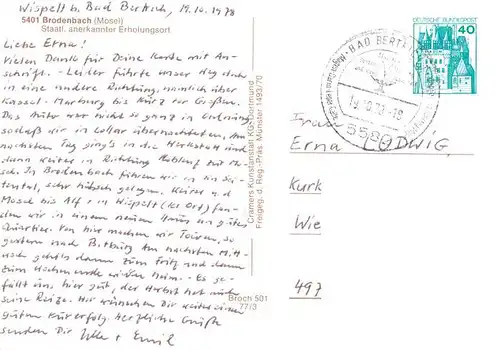 Wispelt b. Bad Bertrich, 19.10.1978
5401 Brodenbach (Mosel)
Staatl. anerkannter Erholungsort
Liebe Erna!
Vielen Dank für Deine Karte mit An-
schrift. - Leider führte unser Weg doch
in eine andere Richtung, nämlich über
Kassel - Marburg bis kurz vor Gießen.
Das Auto war nicht so ganz in Ordnung,
sodaß wir in Lollar übernachteten. Am
nächsten Tag ging's in die Werkstatt und
dann weiter in Richtung Koblenz
In Brodenbach führen wir in ein Sei-
tental, sehr hübsch gelegen. Weiter
Mosel bis Alf in Wispelt (Ort) fan-
den wir in einem neuen Haus ein gutes
Quartier. Von hier machen wir Touren, so
gestern nach Bitburg. Am nächsten Mitt-
woch geht's dann zum Fritz und dann
zum Wochenende wieder heim. - Es ge-
fällt uns hier gut, der Herbst hat auch
seine Reize. Wir wünschen Dir weiter einen
guten Kurerfolg. Herzliche Grüße
senden Dir + Emil
Cramers Kunstanstalt KG, Dortmund
Freigeg. d. Reg.-Präs. Münster 1493/70
Broch 501
77/3
BAD BERTRICH
19.10.78-18
5582
DEUTSCHE BUNDESPOST
40
Frau
Erna LUDWIG
Kurk
Wie
497